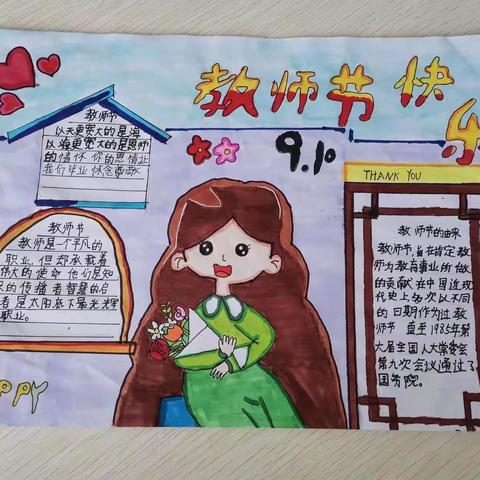 教师节快乐
9.10
教师节
以天更宽大的是海
以海更宽大的是恩师
的情怀 你的恩情让
我们毕业 怀念
教师节
教师是一个平凡的
职业,但却承载着
伟大的使命 他们是知
识的传播者智慧的启
者 是太阳底下最光辉
职业。
THANK YOU
教师节的由来
教师节,旨在肯定教
师为教育事业的做
的贡献 在中国近现
代史上多次以不同
的日期作为过教
师节 直至1985年第
六届全国人大常委会
第九次会议通过了
国务院。
PPY